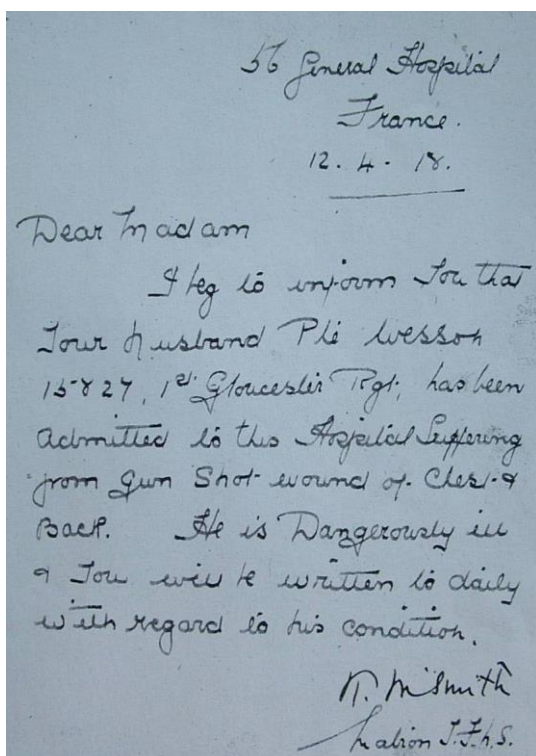 56 General Hospital
France.
12. 4. 18.
Dear Madam
I beg to inform You that
Your Husband Pte Wesson
15827, 1st Gloucester Rgt, has been
admitted to this Hospital Suffering
from Gun Shot wound of Chest &
Back. He is Dangerously ill
& You will be written to daily
with regard to his condition.
K. M. Smith
Matron T.F.N.S.